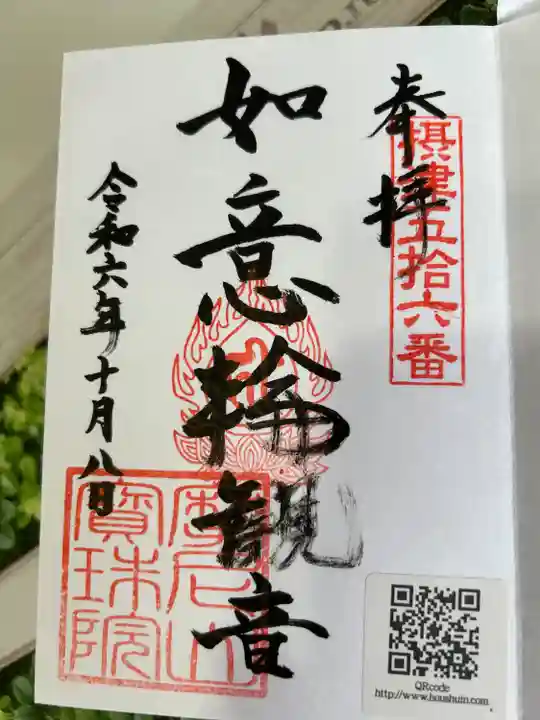 奉拝
摂津五拾六番
如意輪観音
令和六年十月八日
摩尼山
寶珠院
QRcode
http://www.houshuin.com